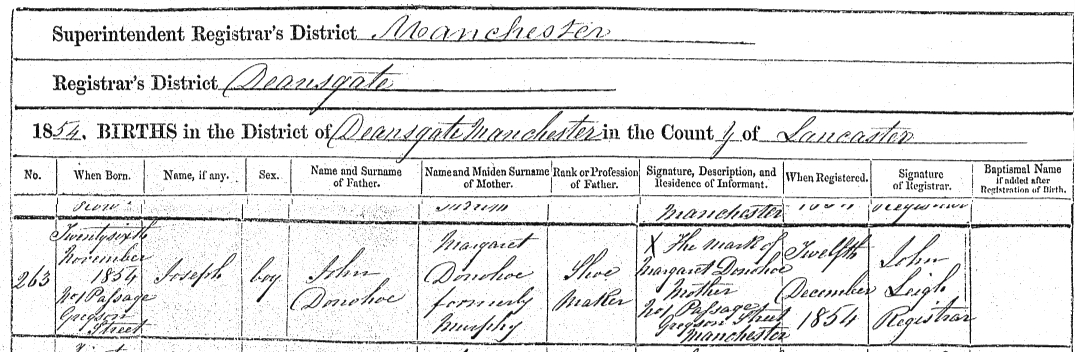 Superintendent Registrar's District Manchester
Registrar's District Deansgate
1854. BIRTHS in the District of Deansgate Manchester in the County of Lancaster
No. When Born. Name, if any. Sex. Name and Surname of Father. Name and Maiden Surname of Mother. Rank or Profession of Father. Signature, Description, and Residence of Informant. When Registered. Signature of Registrar. Baptismal Name if added after Registration of Birth.
Manchester
263
Twentysixth
November
1854
No 1 Passage
Gregson
Street
Joseph
boy
John
Donohoe
Margaret
Donohoe
formerly
Murphy
Shoe
Maker
X The mark of
Margaret Donohoe
Mother
No 1 Passage
Gregson Street
Manchester
Twelfth
December
1854
John
Leigh
Registrar